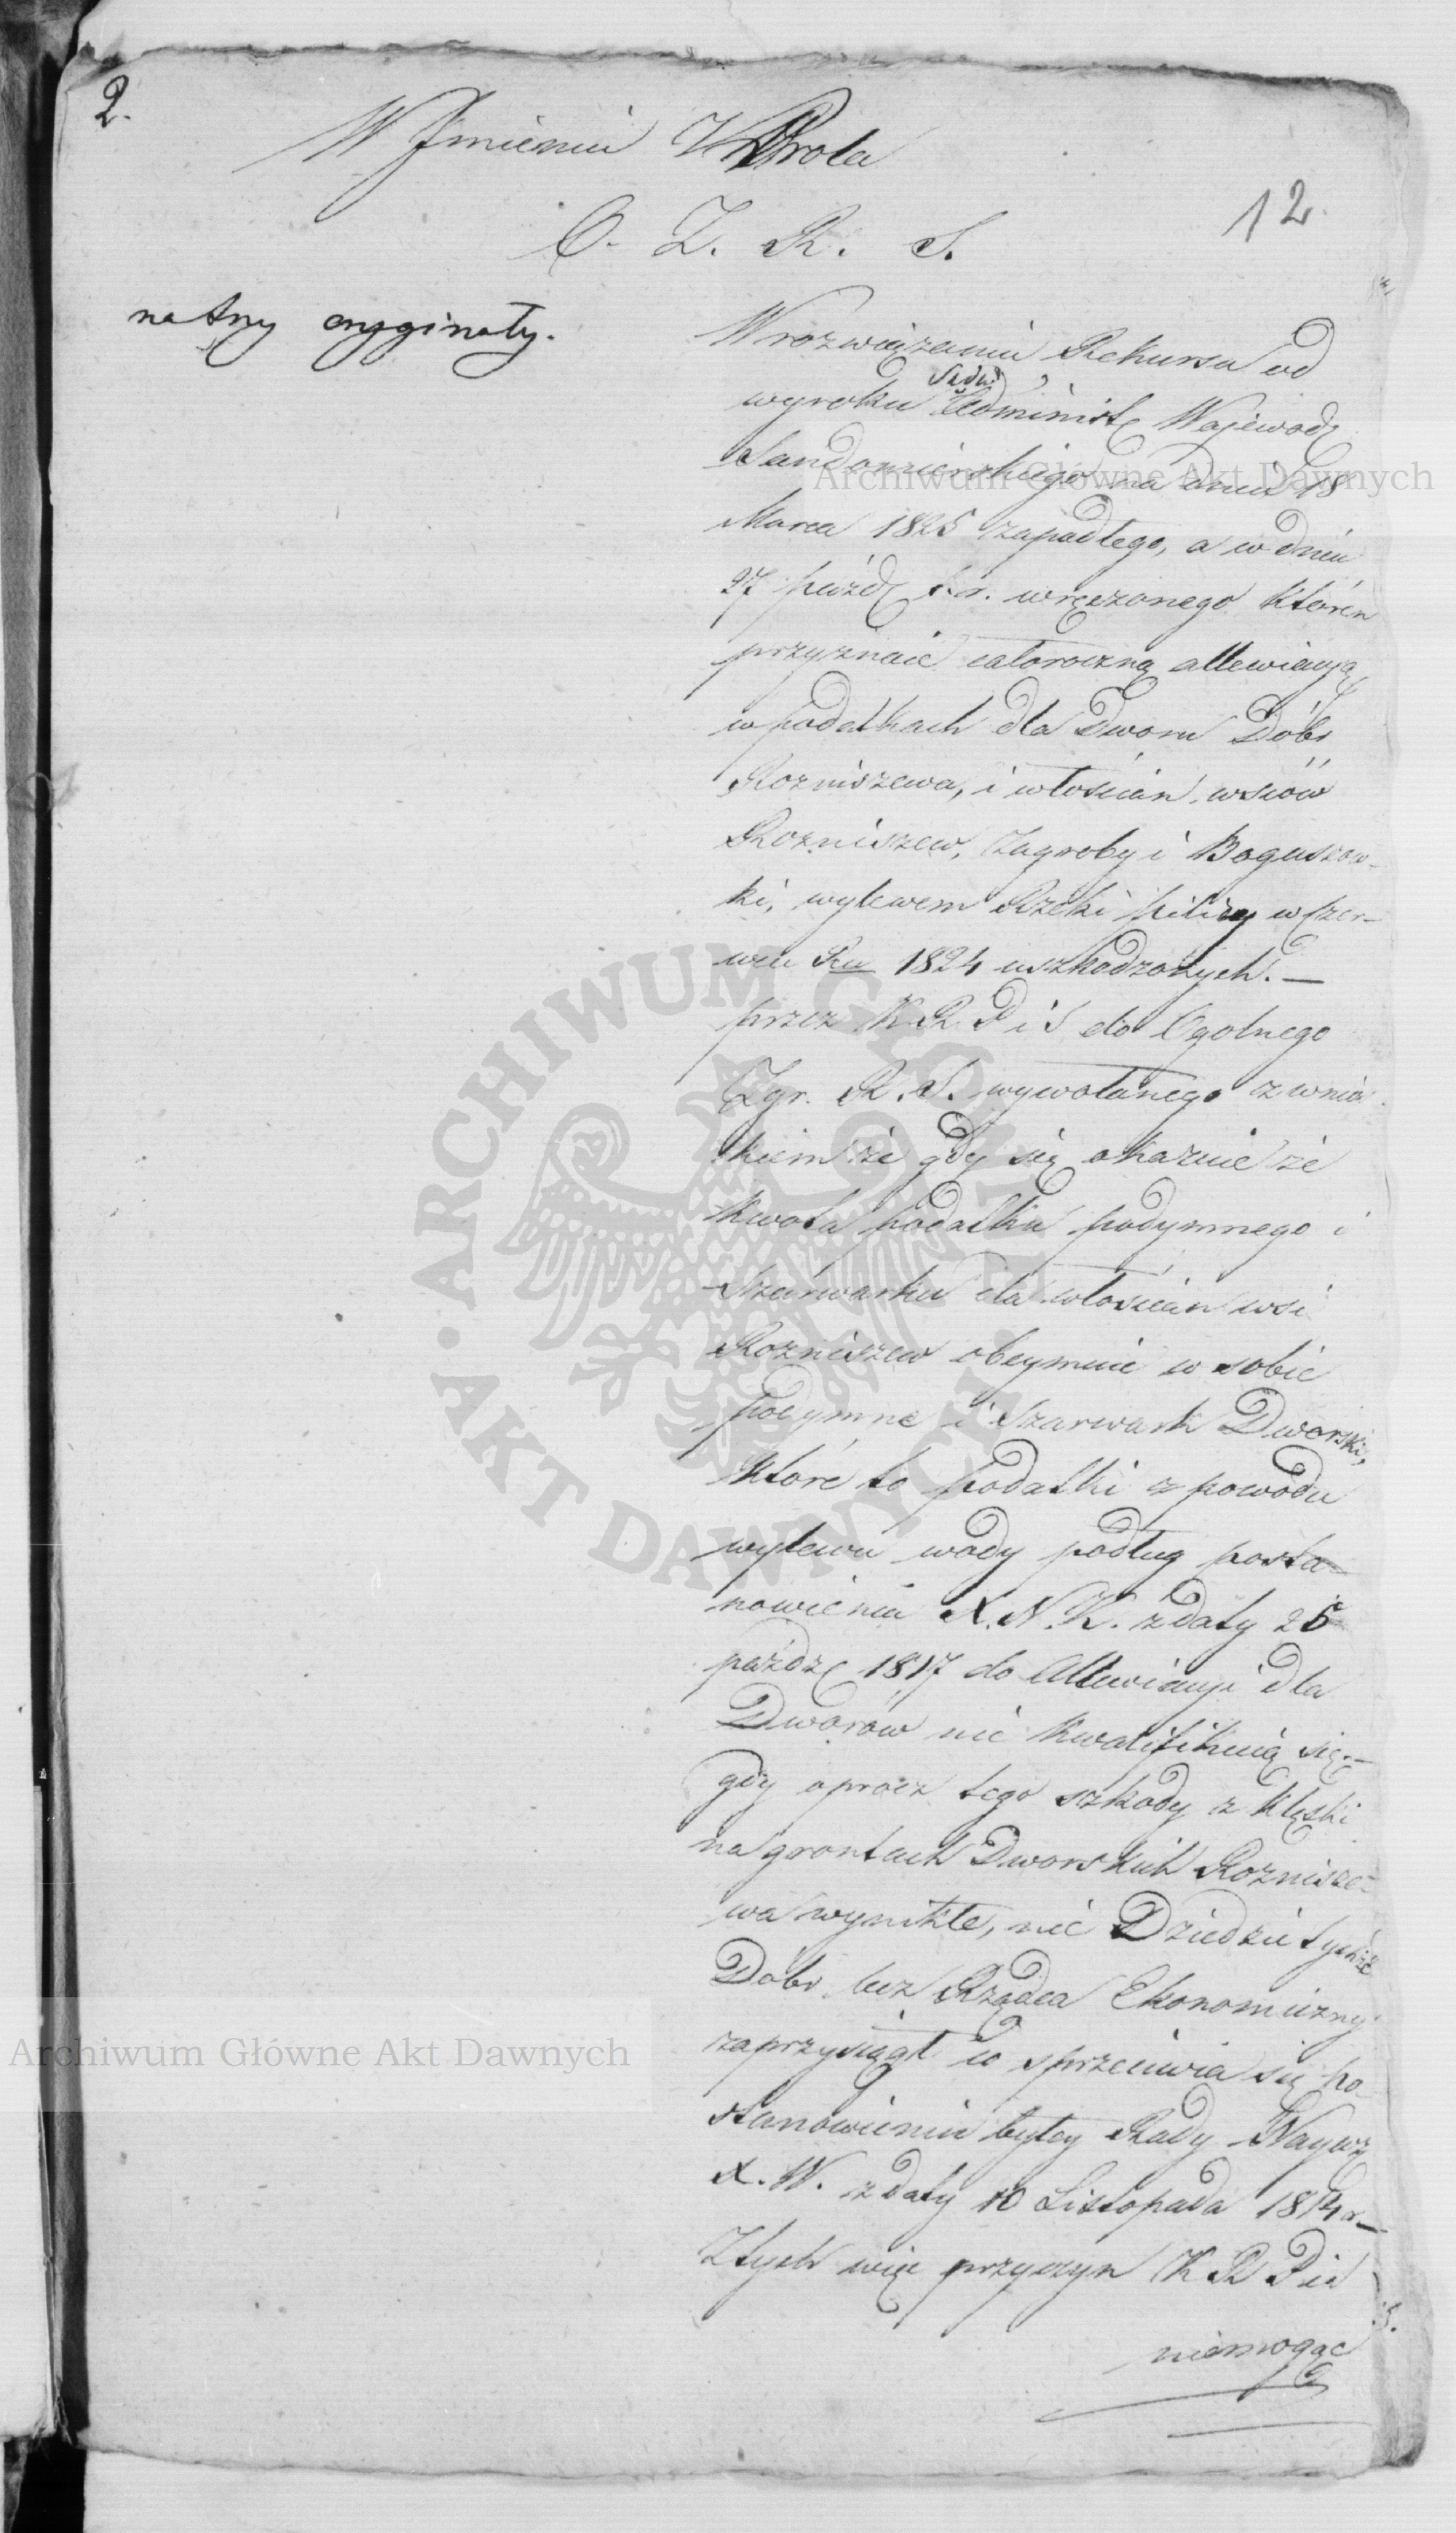 2.
W Imieniu Króla
12
O. Z. R. S.
na trzy oryginały.
W rozwiązaniu Rekursu od
wyroku Sądu Administ. Wojewodz.
Sandomierskiego na dniu 18
Marca 1825 zapadłego, a w dniu
27 paźdz. t. r. wręczonego którén
przyznaie całoroczną allewiacyą
w podatkach dla Dworu Dóbr
Rozniszewa, i włościan wsiów
Rozniszew, Zagroby i Boguszow-
ki, wylewem Rzeki Pilicy w Czer-
wcu Ru 1824 uszkodzonych. —
przez K R P i S do Ogolnego
Zgr. R. S. wywołanego z wnio
skiem że gdy się okazuie że
kwota podatku podymnego i
Szarwarku dla włościan wsi
Rozniszew obeymuie w sobie
podymne i szarwark Dworski,
które to podatki z powodu
wylewu wody podług posta-
nowienia X. N. K. z daty 25
paźdz. 1817 do Allewiacyi dla
Dworów nie kwalifikuią się. —
gdy oprócz tego szkody z klęski
na gruntach Dworskich Roznisze-
wa wynikłe, nie Dziedzic tychże
Dóbr lecz Rządca Ekonomiczny
zaprzysiągł co sprzeciwia się po-
stanowieniu byłey Rady Naywż
X. W. z daty 10 Listopada 1814 r —
Z tych więc przyczyn K R P i S.
niemogąc
Archiwum Główne Akt Dawnych
Archiwum Główne Akt Dawnych
ARCHIWUM GŁÓWNE · AKT DAWNYCH ·